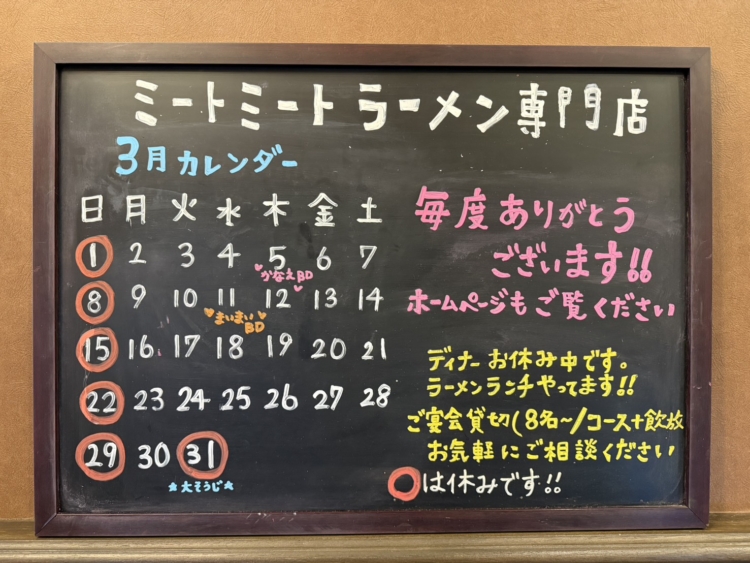 ミートミートラーメン専門店
3月カレンダー
日 月 火 水 木 金 土
1 2 3 4 5 6 7
かなえBD
8 9 10 11 12 13 14
まいまいBD
15 16 17 18 19 20 21
22 23 24 25 26 27 28
29 30 31
★大そうじ★
毎度ありがとう
ございます!!
ホームページもご覧ください
ディナーお休み中です。
ラーメンランチやってます!!
ご宴会貸切(8名~/コース+飲放
お気軽にご相談ください
○は休みです!!